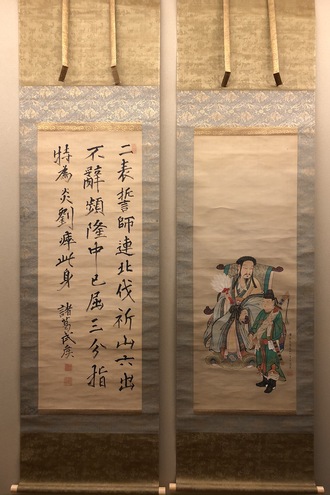 二表誓師連北伐祁山六出
不辭頻隆中已屈三分指
特為炎劉瘁此身
諸葛武侯